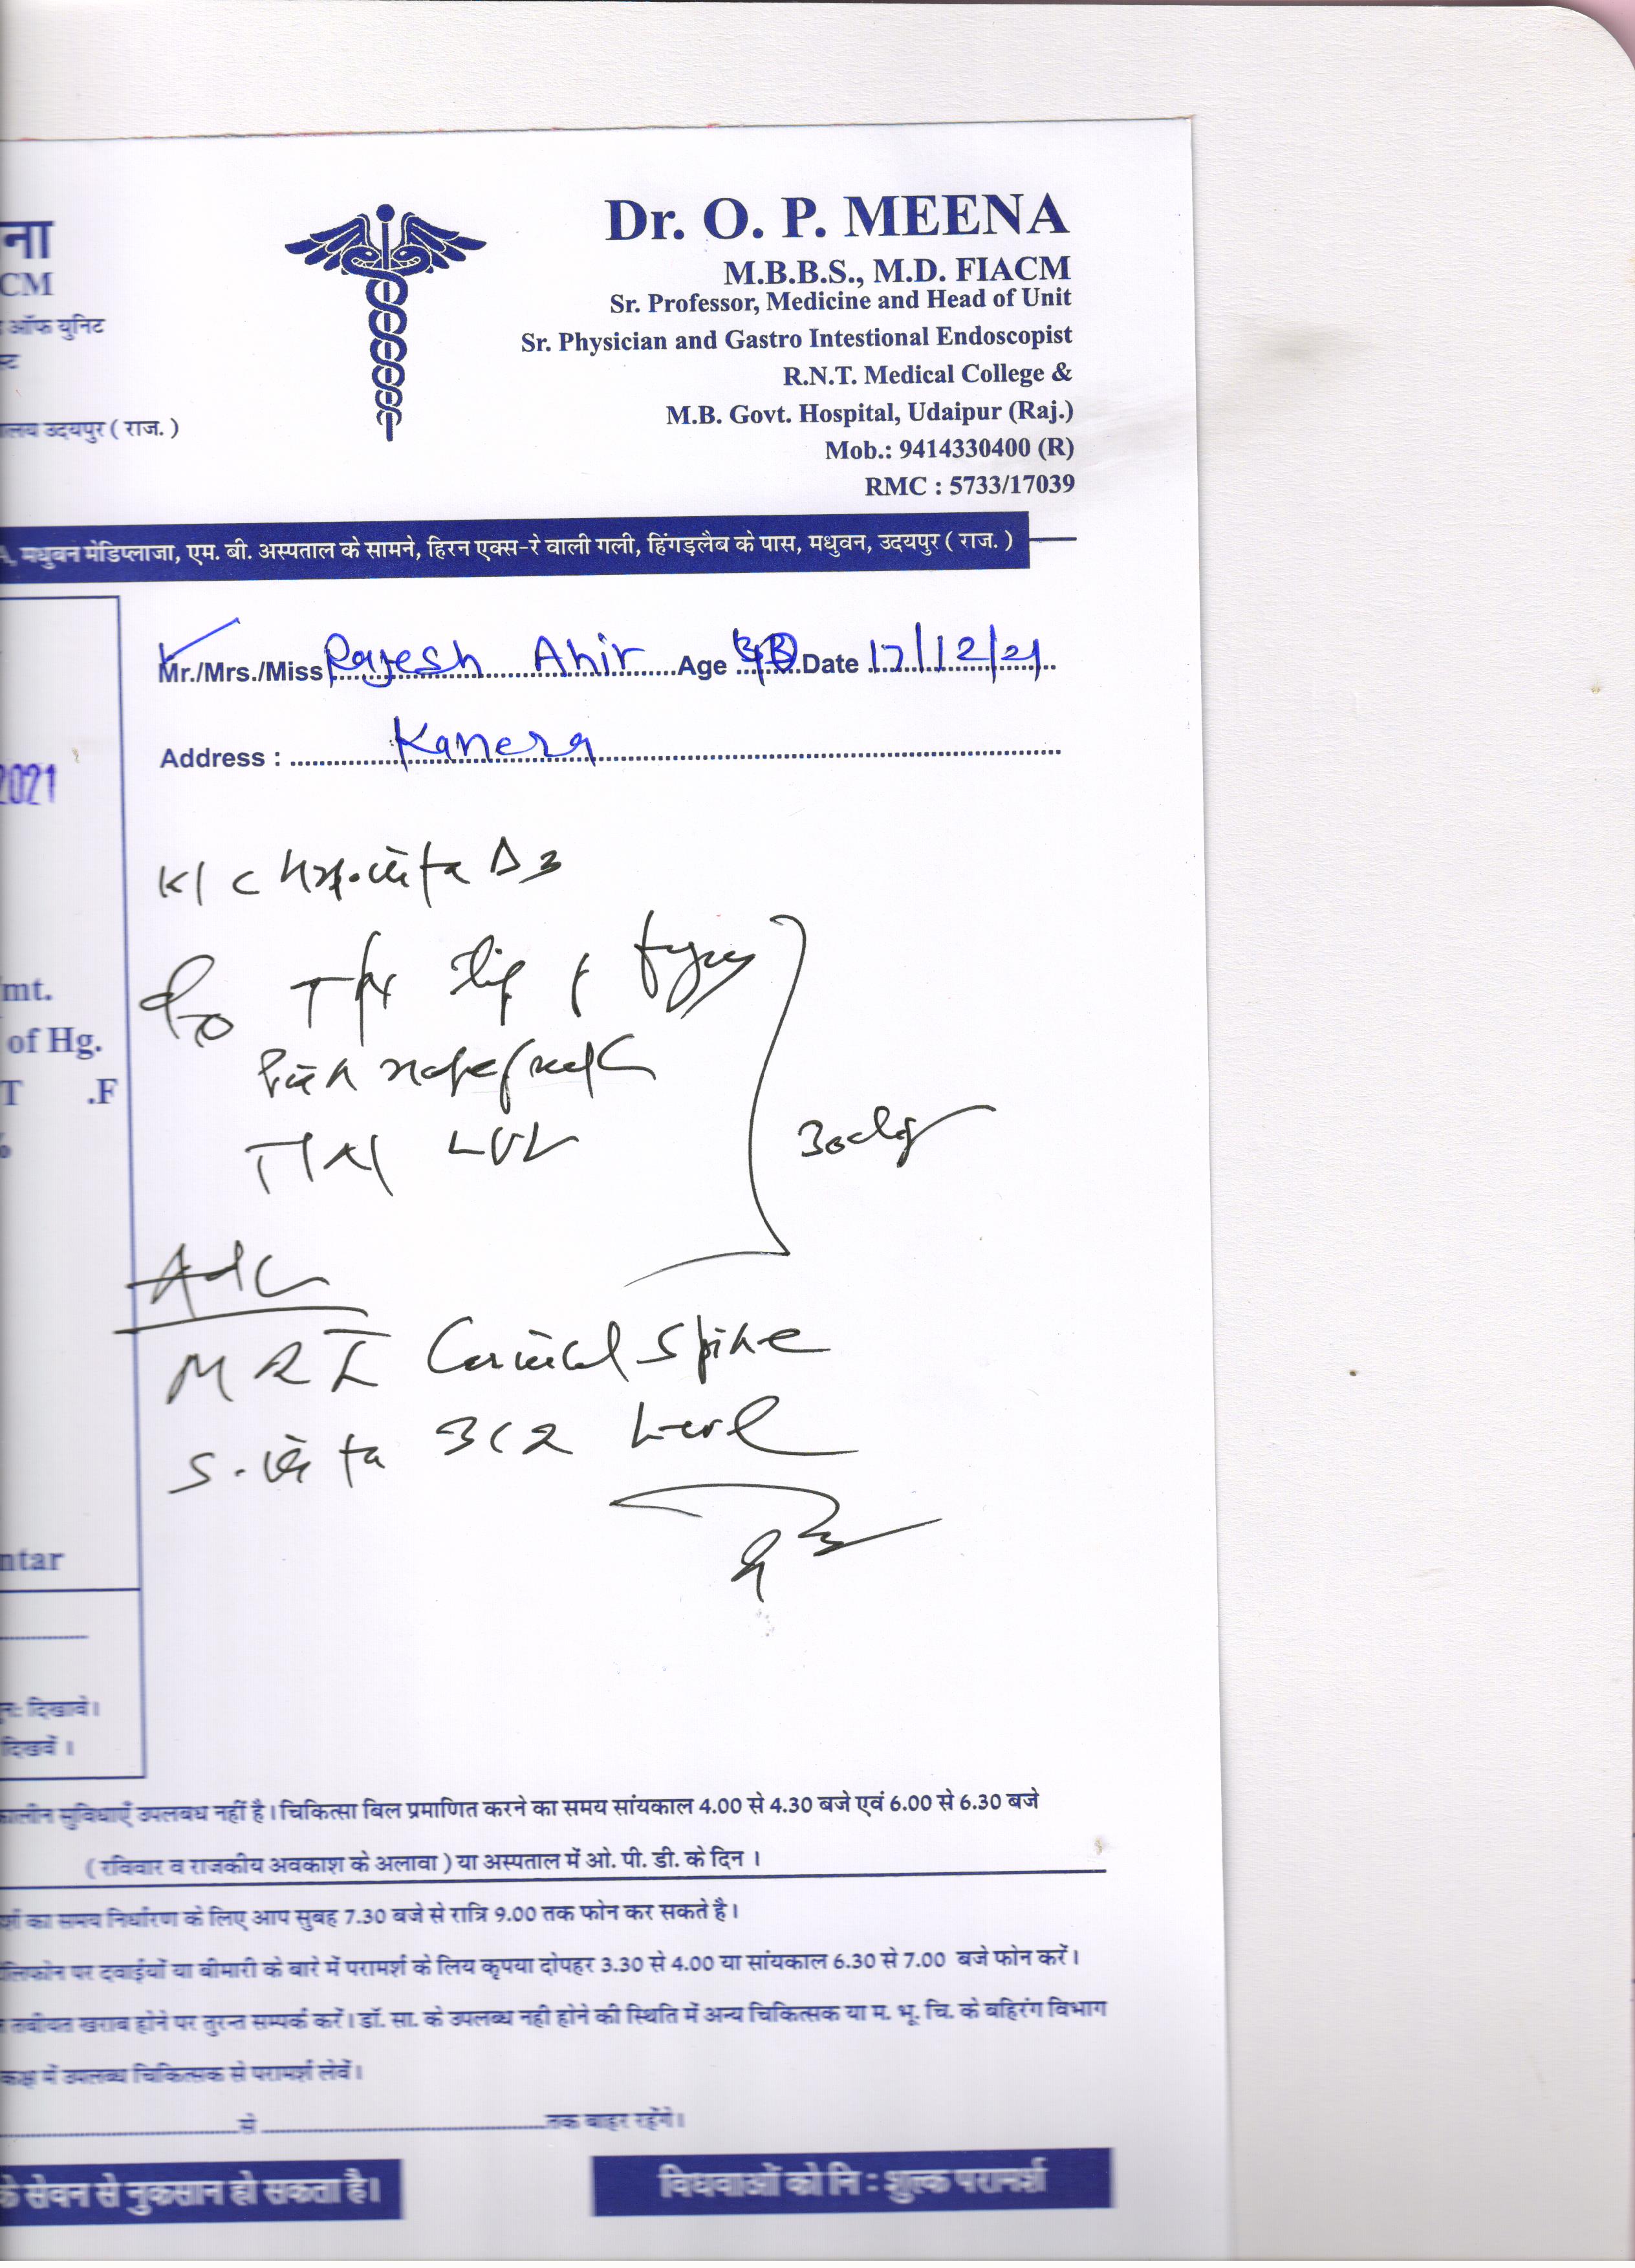 ना
CM
ऑफ युनिट
स्ट
लय उदयपुर ( राज. )
Dr. O. P. MEENA
M.B.B.S., M.D. FIACM
Sr. Professor, Medicine and Head of Unit
Sr. Physician and Gastro Intestional Endoscopist
R.N.T. Medical College &
M.B. Govt. Hospital, Udaipur (Raj.)
Mob.: 9414330400 (R)
RMC : 5733/17039
A, मधुबन मेडिप्लाजा, एम. बी. अस्पताल के सामने, हिरन एक्स-रे वाली गली, हिंगड़लैब के पास, मधुवन, उदयपुर ( राज. )
Mr./Mrs./Miss Rajesh Ahir Age Date 17/12/21
Address : Kanera
2021
mt.
of Hg.
T .F
ntar
K/c D3
T/N
T/N
30 day
Adv
MRI Cervical Spine
S. Vita B12 Level
दिखावे।
दिखवें ।
कालीन सुविधाएँ उपलबध नहीं है। चिकित्सा बिल प्रमाणित करने का समय सांयकाल 4.00 से 4.30 बजे एवं 6.00 से 6.30 बजे
( रविवार व राजकीय अवकाश के अलावा ) या अस्पताल में ओ. पी. डी. के दिन ।
का समय निर्धारण के लिए आप सुबह 7.30 बजे से रात्रि 9.00 तक फोन कर सकते है।
लिफोन पर दवाईयों या बीमारी के बारे में परामर्श के लिय कृपया दोपहर 3.30 से 4.00 या सांयकाल 6.30 से 7.00 बजे फोन करें।
तबीयत खराब होने पर तुरन्त सम्पर्क करें। डॉ. सा. के उपलब्ध नही होने की स्थिति में अन्य चिकित्सक या म. भू. चि. के बहिरंग विभाग
कक्ष में उपलब्ध चिकित्सक से परामर्श लेवें।
से तक बाहर रहेंगे।
के सेवन से नुकसान हो सकता है।
विधवाओं को नि : शुल्क परामर्श